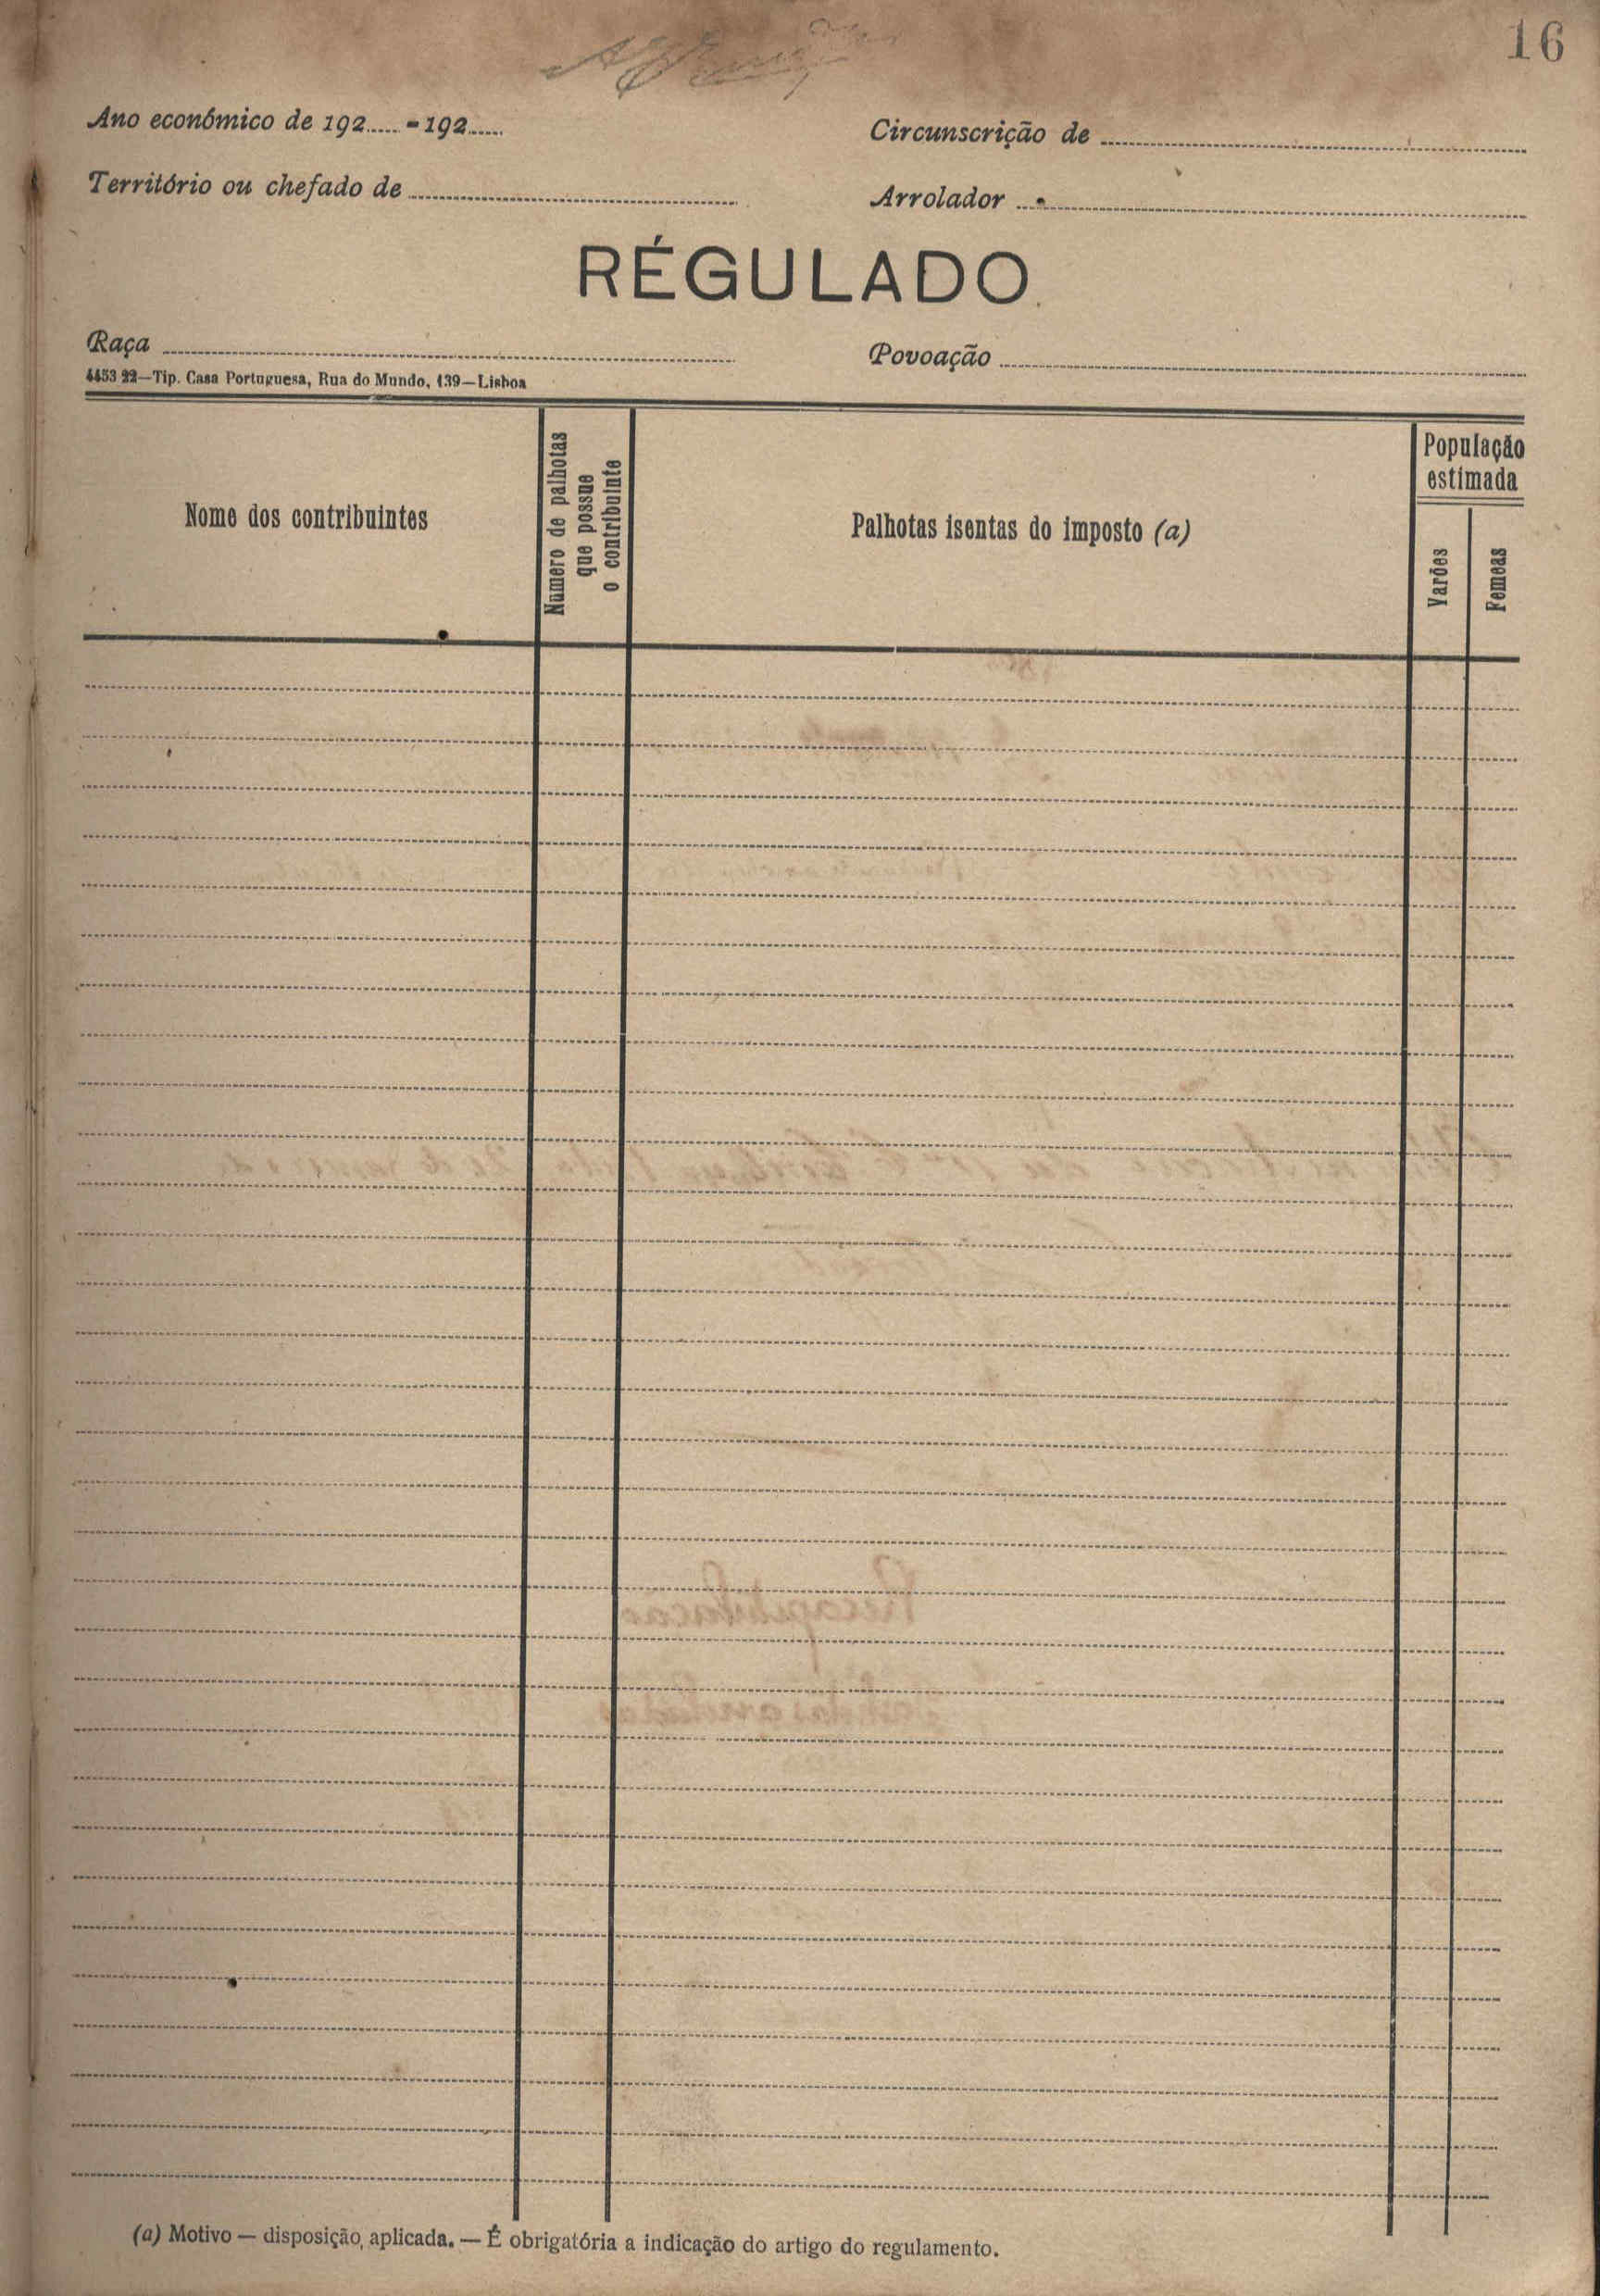 16
Ano económico de 192..... - 192.....
Circunscrição de
Território ou chefado de
Arrolador
RÉGULADO
Raça
Povoação
4453 22—Tip. Casa Portuguesa, Rua do Mundo, 139—Lisboa
Nome dos contribuintes
Número de palhotas
que possue
o contribuinte
Palhotas isentas do imposto (a)
População
estimada
Varões
Femeas
Recapitulação
(a) Motivo — disposição aplicada. — É obrigatória a indicação do artigo do regulamento.